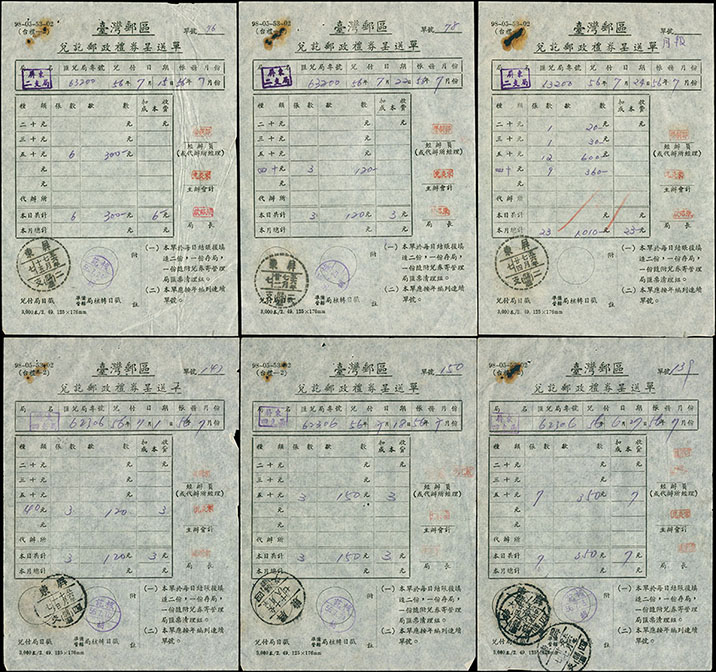 98-05-53-02
(台禮—2)
臺灣郵區
單號 96
兌訖郵政禮券呈送單
局名 匯兌局專號 兌付日期 帳務月份
屏東
二支局
63200 56年7月15日 56年7月份
種類 張數 款數 扣成 收本費
二十元 元 元
三十元
五十元 6 300—
元
元
代辦所
本日共計 6 300—元 6元
本月總計 元 元
經辦員
(或代辦所經理)
主辦會計
局長
附註
(一)本單於每日結賬後填
造二份,一份存局,
一份隨附兌券寄管理
局匯票清理組。
(二)本單應按年編列連續
單號。
兌付局日戳
局核轉日戳
3,000本/2.49. 125×176mm
98-05-53-02
臺灣郵區
單號 98
兌訖郵政禮券呈送單
局名 匯兌局專號 兌付日期 帳務月份
屏東
二支局
63200 56年7月22日 56年7月份
種類 張數 款數 扣成 收本費
二十元 元 元
三十元
五十元
四十元 3 120—
元
代辦所
本日共計 3 120元 3元
本月總計 元 元
經辦員
(或代辦所經理)
主辦會計
局長
附註
(一)本單於每日結賬後填
造二份,一份存局,
一份隨附兌券寄管理
局匯票清理組。
(二)本單應按年編列連續
單號。
兌付局日戳
局核轉日戳
3,000本/2.49. 125×176mm
98-05-53-02
臺灣郵區
單號
月報
兌訖郵政禮券呈送單
局名 匯兌局專號 兌付日期 帳務月份
屏東
二支局
63200 56年7月24日 56年7月份
種類 張數 款數 扣成 收本費
二十元 1 20— 元
三十元 1 30
五十元 12 600—
四十元 9 360—
元
代辦所
本日共計 元 元
本月總計 23 1,010—元 23元
經辦員
(或代辦所經理)
主辦會計
局長
附註
(一)本單於每日結賬後填
造二份,一份存局,
一份隨附兌券寄管理
局匯票清理組。
(二)本單應按年編列連續
單號。
兌付局日戳
局核轉日戳
3,000本/2.49. 125×176mm
98-05-53-02
(台禮—2)
臺灣郵區
單號 142
兌訖郵政禮券呈送單
局名 匯兌局專號 兌付日期 帳務月份
62306 56年7月1日 56年7月份
種類 張數 款數 扣成 收本費
二十元 元 元
三十元
五十元
40元 3 120 3
元
代辦所
本日共計 3 120元 3元
本月總計 元 元
經辦員
(或代辦所經理)
主辦會計
局長
附註
(一)本單於每日結賬後填
造二份,一份存局,
一份隨附兌券寄管理
局匯票清理組。
(二)本單應按年編列連續
單號。
兌付局日戳
局核轉日戳
3,000本/2.49. 125×176mm
98-05-53-02
(台禮—2)
臺灣郵區
單號 150
兌訖郵政禮券呈送單
局名 匯兌局專號 兌付日期 帳務月份
62306 56年7月18日 56年7月份
種類 張數 款數 扣成 收本費
二十元 元 元
三十元
五十元 3 150元 3
元
元
代辦所
本日共計 3 150元 3元
本月總計 元 元
經辦員
(或代辦所經理)
主辦會計
局長
附註
(一)本單於每日結賬後填
造二份,一份存局,
一份隨附兌券寄管理
局匯票清理組。
(二)本單應按年編列連續
單號。
兌付局日戳
局核轉日戳
3,000本/2.49. 125×176mm
98-05-53-02
(台禮—2)
臺灣郵區
單號 139
兌訖郵政禮券呈送單
局名 匯兌局專號 兌付日期 帳務月份
62306 56年6月27日 56年7月份
種類 張數 款數 扣成 收本費
二十元 元 元
三十元
五十元 7 350元 7
元
元
代辦所
本日共計 7 350元 7元
本月總計 元 元
經辦員
(或代辦所經理)
主辦會計
局長
附註
(一)本單於每日結賬後填
造二份,一份存局,
一份隨附兌券寄管理
局匯票清理組。
(二)本單應按年編列連續
單號。
兌付局日戳
局核轉日戳
3,000本/2.49. 125×176mm